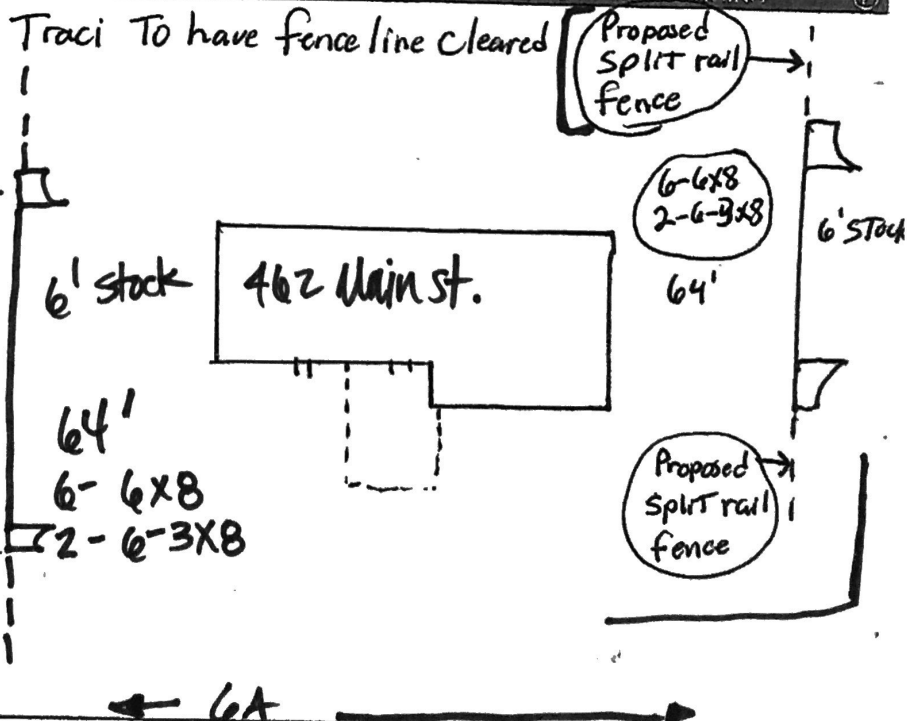 Traci To have fence line cleared
Proposed
Split rail
fence
6-6x8
2-6-3x8
6' Stock
64'
6' stock
462 Main st.
64'
6- 6x8
2- 6-3x8
Proposed
Split rail
fence
6A